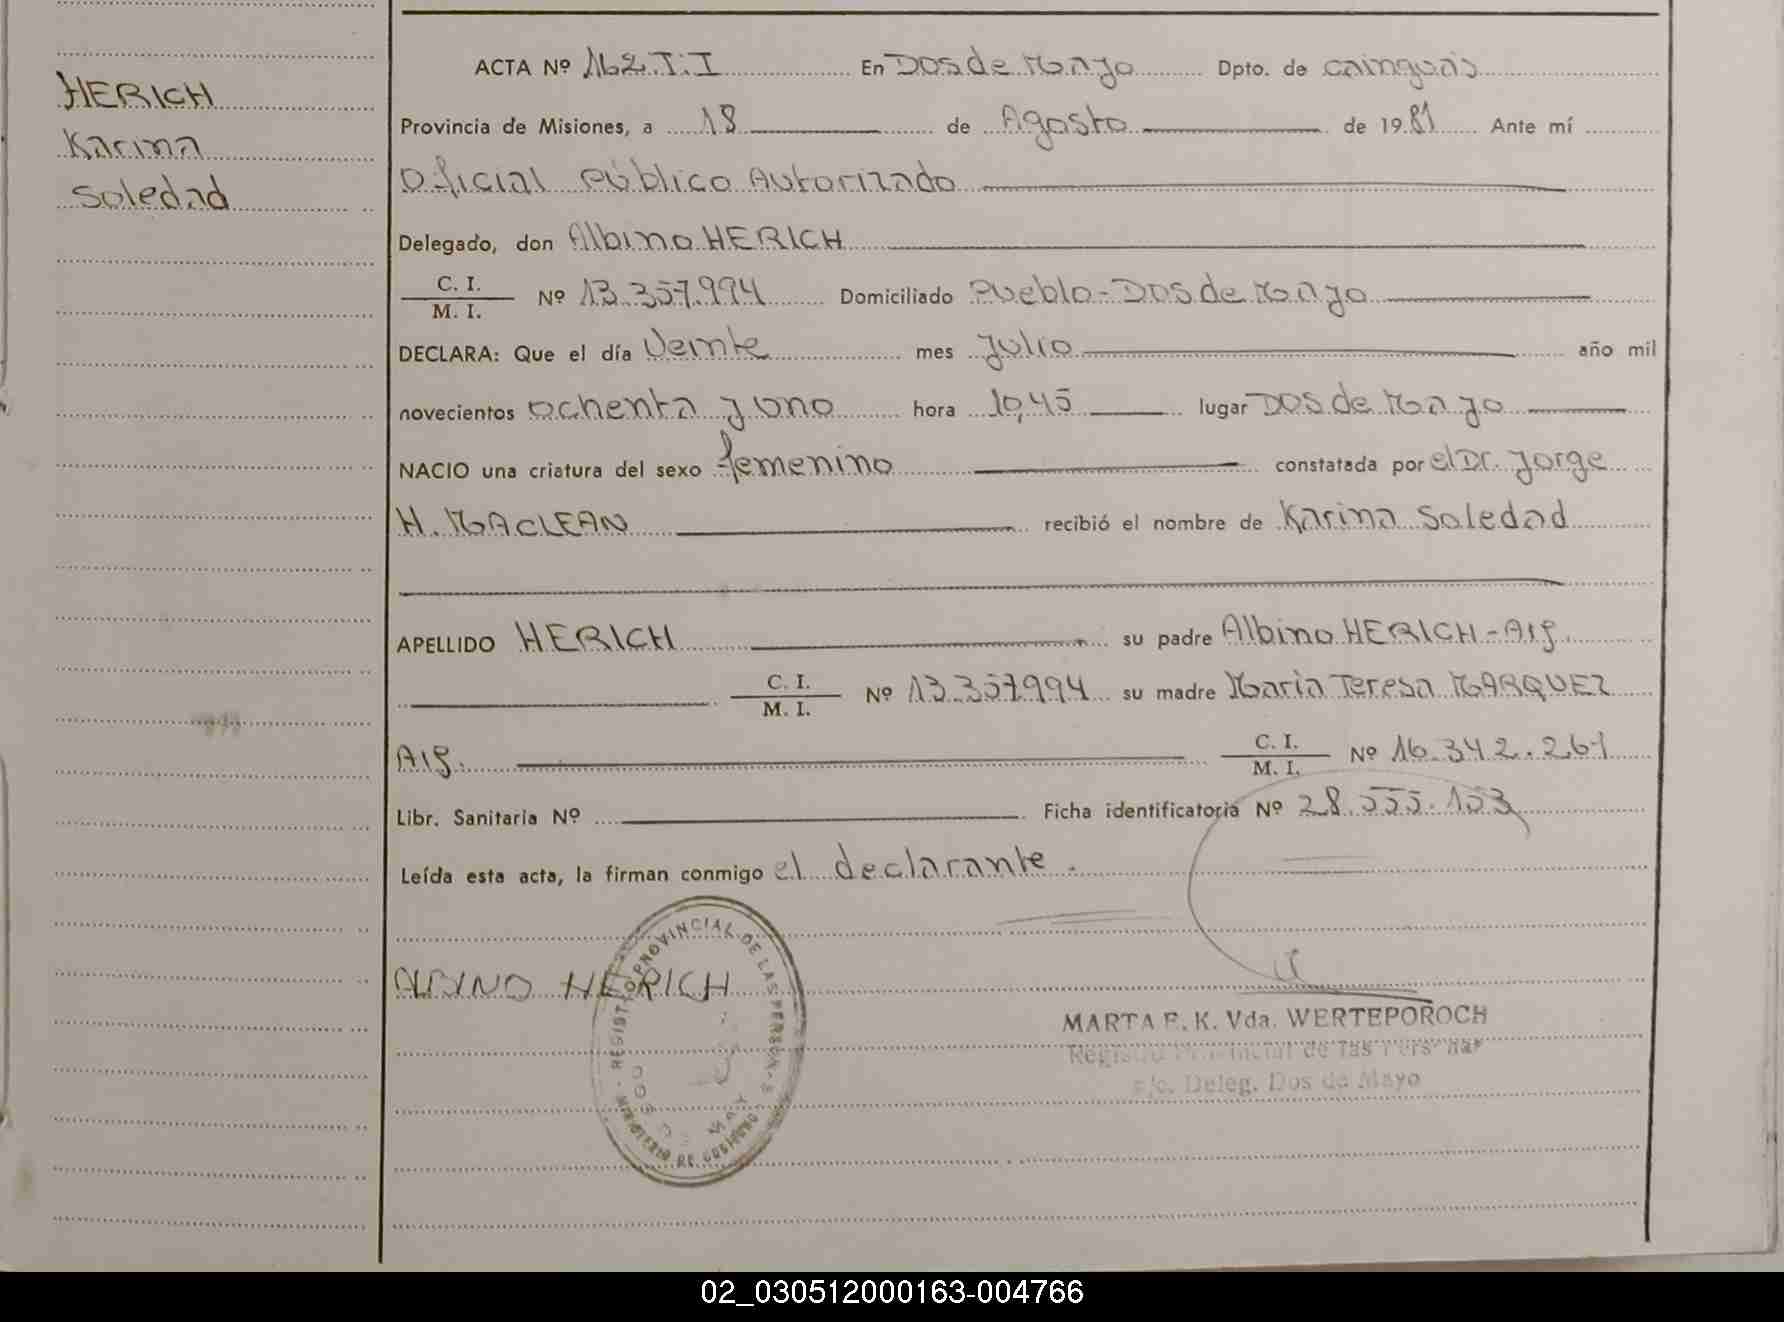 HERICH
Karina
Soledad
ACTA Nº 162.T.I En Dos de Mayo Dpto. de Cainguás
Provincia de Misiones, a 18 de Agosto de 1981 Ante mí
Oficial Público Autorizado
Delegado, don Albino HERICH
C. I.
M. I. Nº 13.357.994 Domiciliado Pueblo - Dos de Mayo
DECLARA: Que el día Veinte mes Julio año mil
novecientos ochenta y uno hora 10,45 lugar Dos de Mayo
NACIO una criatura del sexo femenino constatada por el Dr. Jorge
H. MACLEAN recibió el nombre de Karina Soledad
APELLIDO HERICH su padre Albino HERICH - Arg.
C. I.
M. I. Nº 13.357.994 su madre Maria Teresa MARQUEZ
Arg. C. I.
M. I. Nº 16.342.261
Libr. Sanitaria Nº Ficha identificatoria Nº 28.555.153
Leída esta acta, la firman conmigo el declarante.
ALBINO HERICH
REGISTRO PROVINCIAL DE LAS PERSONAS
MINISTERIO DE GOBIERNO
DOS DE MAYO
MARTA E. K. Vda. WERTEPOROCH
Registro Provincial de las Personas
Deleg. Dos de Mayo
02_030512000163-004766